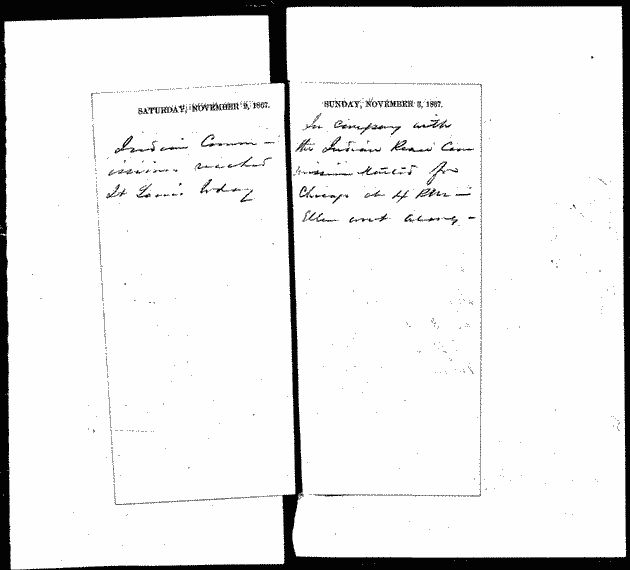 SATURDAY, NOVEMBER 2, 1867.
Indian Comm-
issioners reached
St Louis today
SUNDAY, NOVEMBER 3, 1867.
In company with
the Indian Peace Com
mission started for
Chicago at 4 P.M. —
Ellen went along —